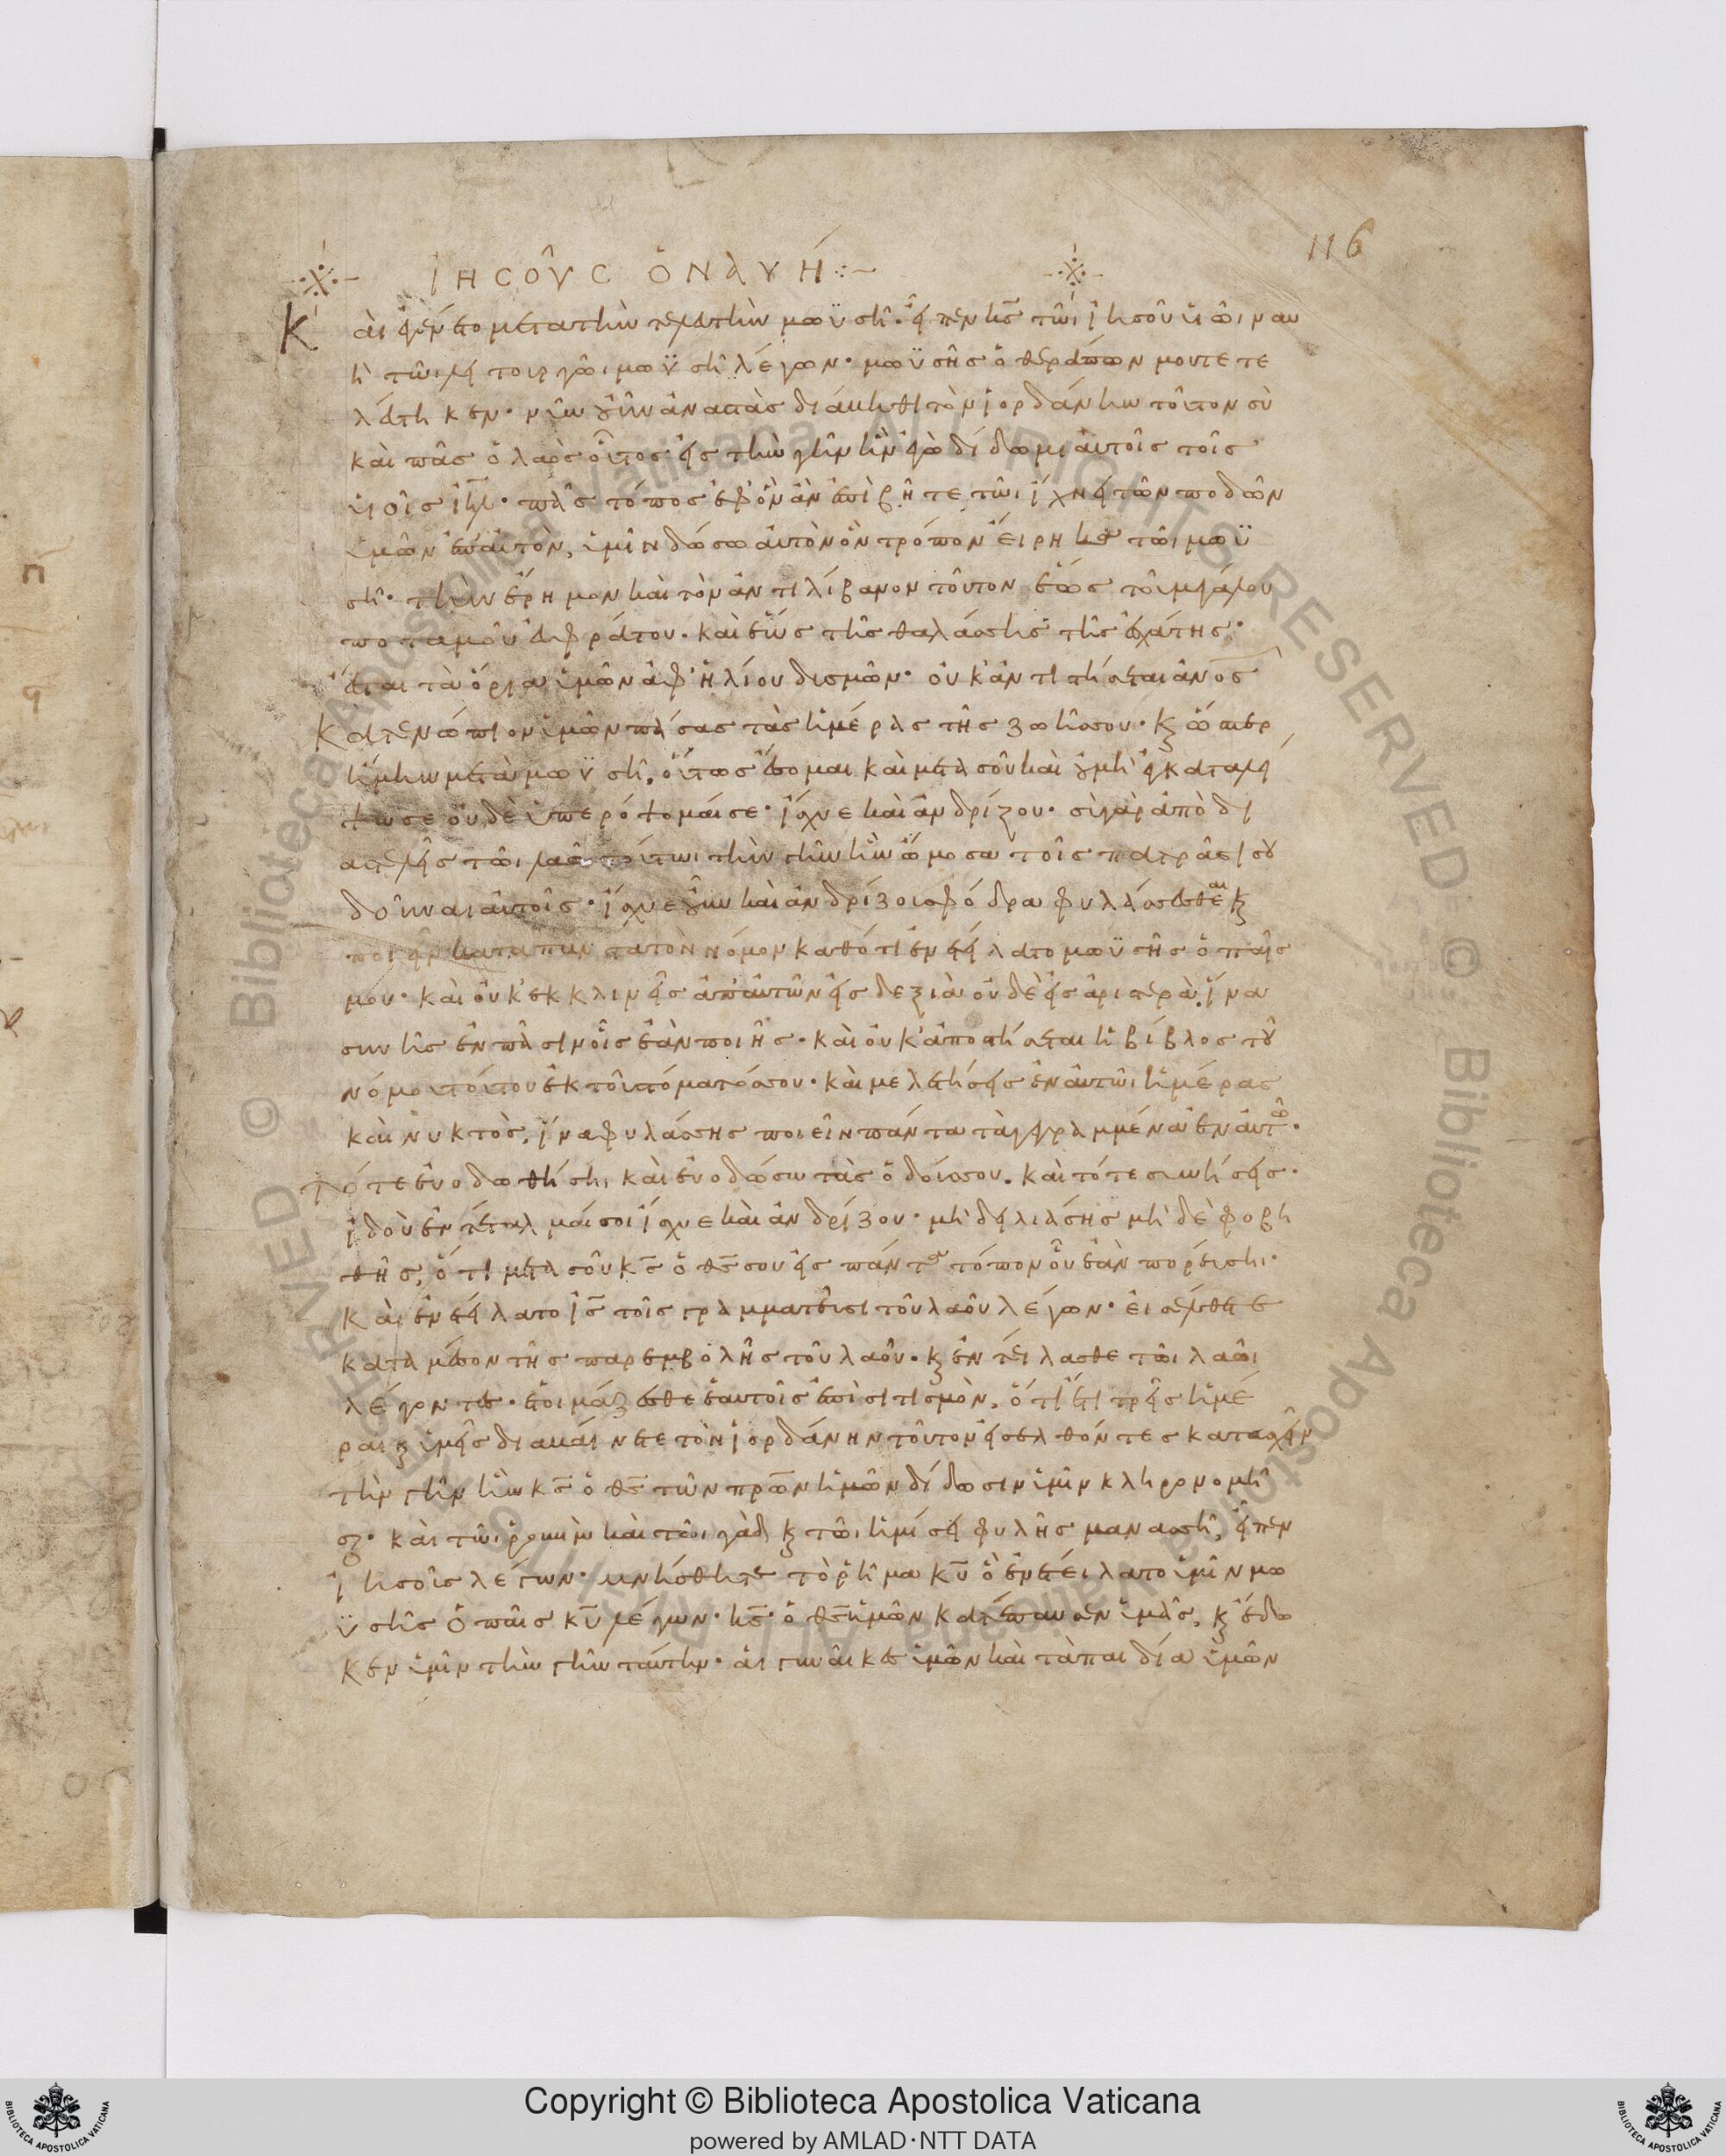 116
ἸΗCΟῦC ὉΝΑΥΉ
Καὶ ἐγένετο μετὰ τὴν τελευτὴν μωϋσῆ· εἶπεν κ̅ς̅ τῶι ἰησοῦ υἱῶι ναυ
ὴ τῶι λειτουργῶι μωϋσῆ λέγων· μωϋσῆς ὁ θεράπων μου τετε
λεύτηκεν· νῦν οὖν ἀναστὰς διάβηθι τὸν ἰορδάνην τοῦτον σὺ
καὶ πᾶς ὁ λαὸς οὗτος εἰς τὴν γῆν ἣν ἐγὼ δίδωμι αὐτοῖς τοῖς
υἱοῖς ι̅η̅λ̅· πᾶς τόπος ἐφ' ὃν ἂν ἐπιβῆτε τῶι ἴχνει τῶν ποδῶν
ὑμῶν ἐπ' αὐτὸν, ὑμῖν δώσω αὐτὸν ὃν τρόπον εἴρηκα τῶι μωϋ
σῆ· τὴν ἔρημον καὶ τὸν ἀντιλίβανον τοῦτον ἕως τοῦ μεγάλου
ποταμοῦ εὐφράτου· καὶ ἕως τῆς θαλάσσης τῆς ἐσχάτης·
ἔσται τὰ ὅρια ὑμῶν ἀφ' ἡλίου δυσμῶν· οὐκ ἀντιστήσεται α̅ν̅ο̅ς̅
κατενώπιον ὑμῶν πάσας τὰς ἡμέρας τῆς ζωῆς σου· κ̣ ὥσπερ
ἤμην μετὰ μωϋσῆ, οὕτως ἔσομαι καὶ μετὰ σοῦ καὶ οὐ μὴ ἐγκαταλεί
ψω σε οὐδὲ ὑπερόψομαί σε· ἴσχυε καὶ ἀνδρίζου· σὺ γὰρ ἀποδι
αστελεῖς τῶι λαῶι τούτωι τὴν γῆν ἣν ὤμοσα τοῖς πατράσι σου
δοῦναι αὐτοῖς· ἴσχυε οὖν καὶ ἀνδρίζου σφόδρα φυλάσσεσθαι κ̣
ποιεῖν κατὰ πάντα τὸν νόμον καθότι ἐνετείλατο μωϋσῆς ὁ παῖς
μου· καὶ οὐκ ἐκκλινεῖς ἀπ' αὐτῶν εἰς δεξιὰ οὐδὲ εἰς ἀριστερὰ, ἵνα
συνῆς ἐν πᾶσιν οἷς ἐὰν ποιῆς· καὶ οὐκ ἀποστήσεται ἡ βίβλος τοῦ
νόμου τούτου ἐκ τοῦ στόματός σου· καὶ μελετήσεις ἐν αὐτῶι ἡμέρας
καὶ νυκτὸς, ἵνα φυλάσσης ποιεῖν πάντα τὰ γεγραμμένα ἐν αὐτῶ·
τότε εὐοδωθήσηι καὶ εὐοδώσω τὰς ὁδούς σου· καὶ τότε συνήσεις·
ἰδοὺ ἐντέταλμαί σοι ἴσχυε καὶ ἀνδρίζου· μὴ δειλιάσης μὴ δὲ φοβη
θῆς, ὅτι μετὰ σοῦ κ̅ς̅ ὁ θ̅ς̅ σου εἰς πάντα τόπον οὗ ἐὰν πορεύσηι·
Καὶ ἐνετείλατο ι̅ς̅ τοῖς γραμματεῦσι τοῦ λαοῦ λέγων· εἰσέλθετε
κατὰ μέσον τῆς παρεμβολῆς τοῦ λαοῦ· κ̣ ἐντείλασθε τῶι λαῶι
λέγοντες· ἑτοιμάζεσθε ἑαυτοῖς ἐπισιτισμὸν, ὅτι ἔτι τρεῖς ἡμέ
ραι κ̣ ὑμεῖς διαβαίνετε τὸν ἰορδάνην τοῦτον εἰσελθόντες κατασχεῖν
τὴν γῆν ἣν κ̅ς̅ ὁ θ̅ς̅ τῶν π̅ρ̅ω̅ν̅ ἡμῶν δίδωσιν ὑμῖν κληρονομῆ
σαι· καὶ τῶι ῥουβὶν καὶ τῶι γὰδ κ̣ τῶι ἡμίσει φυλῆς μανασσῆ, εἶπεν
ἰησοῦς λέγων· μνήσθητε τὸ ῥῆμα κ̅υ̅ ὃ ἐνετείλατο ὑμῖν μω
ϋσῆς ὁ παῖς κ̅υ̅ λέγων· κ̅ς̅ ὁ θ̅ς̅ ὑμῶν κατέπαυσεν ὑμᾶς, κ̣ ἔδω
κεν ὑμῖν τὴν γῆν ταύτην· αἱ γυναῖκες ὑμῶν καὶ τὰ παιδία ὑμῶν
Copyright © Biblioteca Apostolica Vaticana
powered by AMLAD·NTT DATA